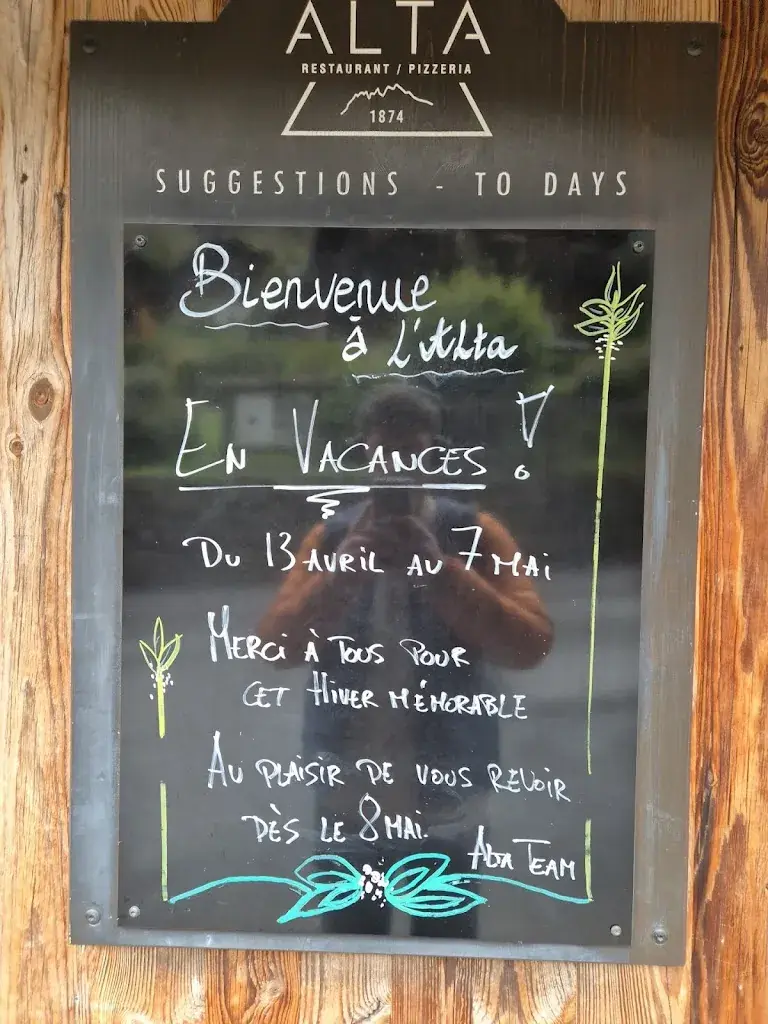 ALTA
RESTAURANT / PIZZERIA
1874
SUGGESTIONS - TO DAYS
Bienvenue
à L'Alta
EN VACANCES !
DU 13 AVRIL AU 7 MAI
MERCI À TOUS POUR
CET HIVER MÉMORABLE
AU PLAISIR DE VOUS REVOIR
DÈS LE 8 MAI.
Alta TEAM